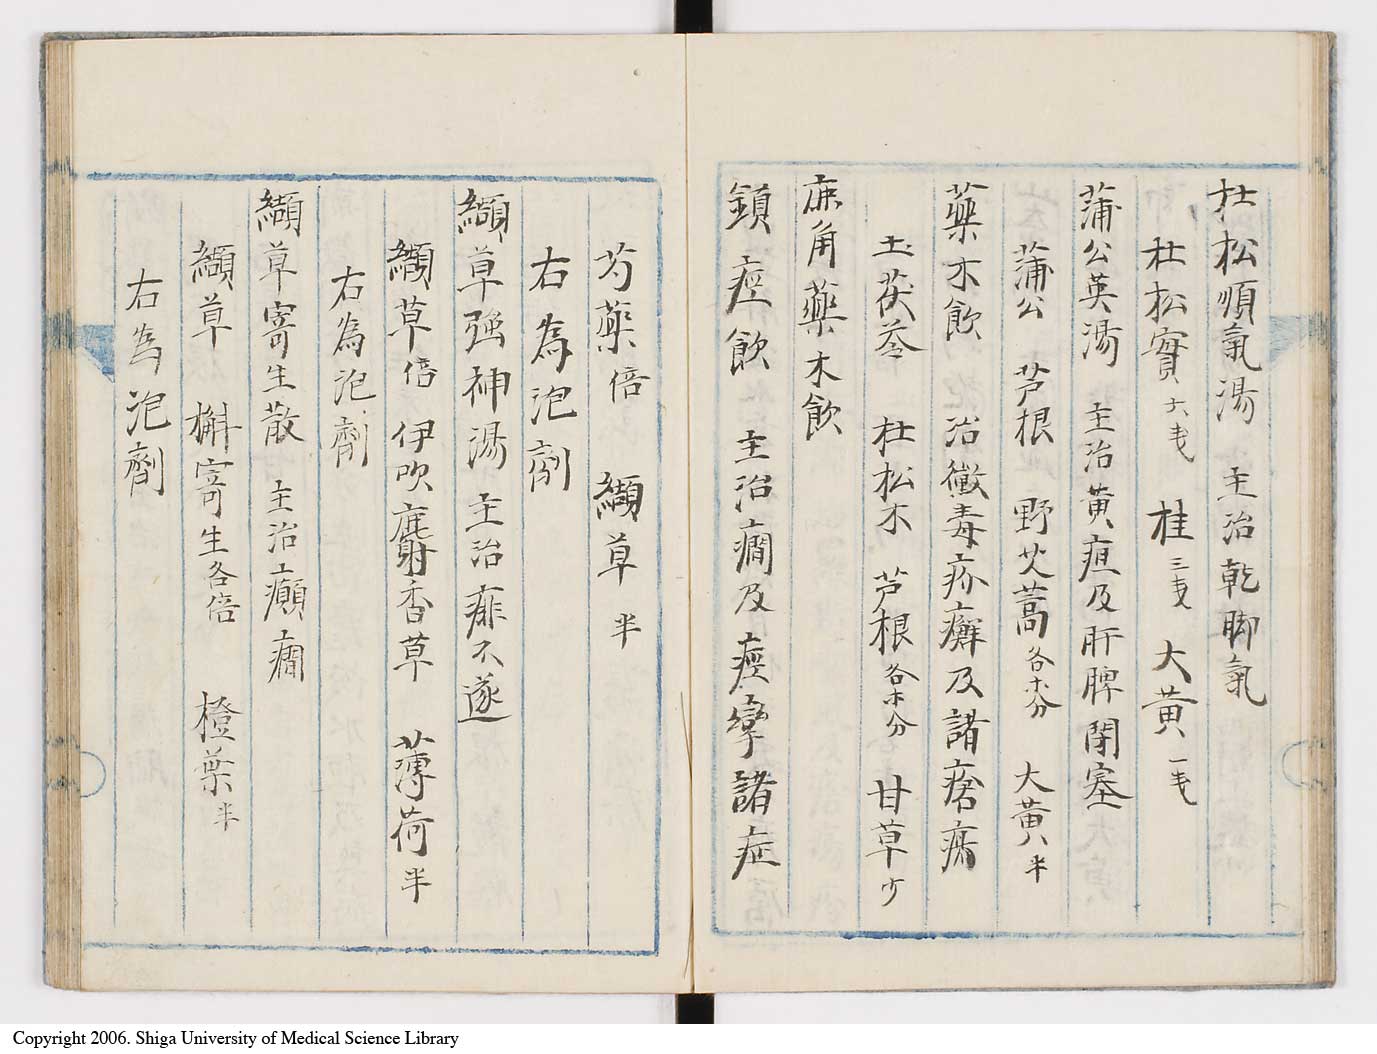 杜松順氣湯　主治乾脚氣
杜松實六戔　桂三戔　大黄一戔
蒲公英湯　主治黄疸及肝脾閉塞
蒲公　芦根　野艾蒿各等分　大黄半
藥木飲　治黴毒疥癬及諸瘡瘍
土茯苓　杜松木　芦根各等分　甘草少
鹿角藥木飲
鎮痙飲　主治癇及痙攣諸症
芍藥倍　纈草半
右為泡劑
纈草強神湯　主治痱不遂
纈草倍　伊吹麝香草　薄荷半
右為泡劑
纈草寄生散　主治癲癇
纈草　槲寄生各倍　橙葉半
右為泡劑
Copyright 2006. Shiga University of Medical Science Library